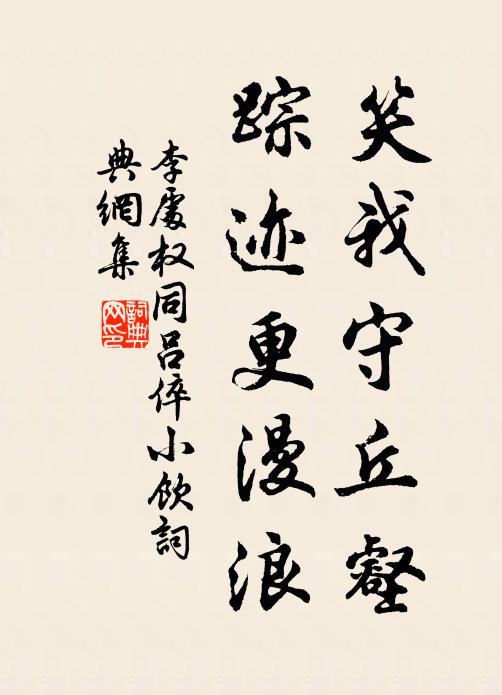 笑我守丘壑
踪迹更漫浪
李處权同吕倅小飲詞
典網集
詞典
网印